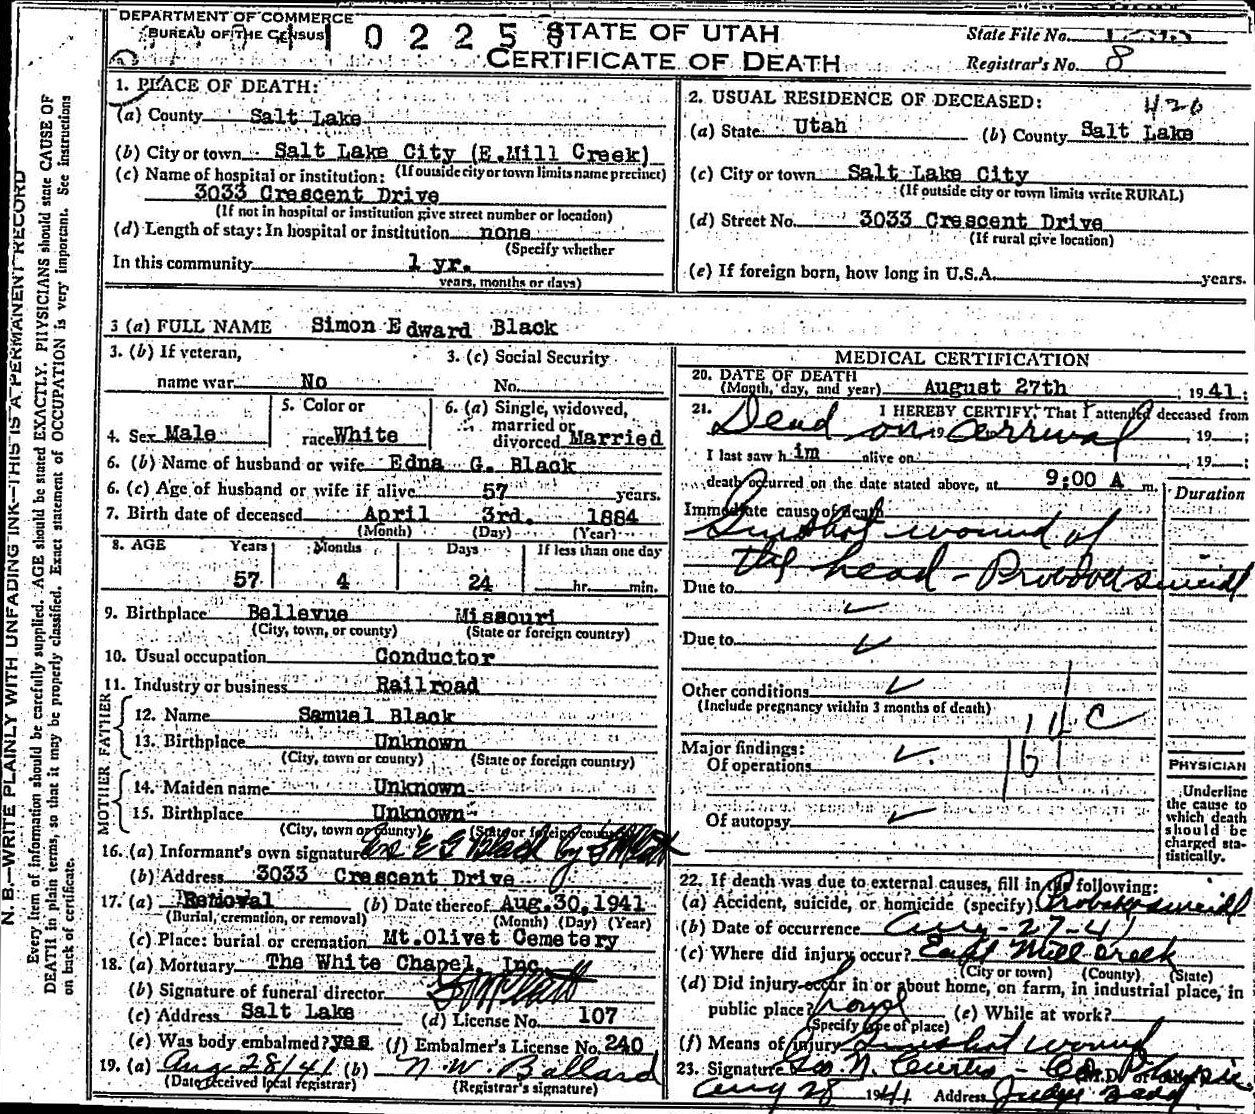 DEPARTMENT OF COMMERCE
BUREAU OF THE CENSUS
0 2 2 5 8
STATE OF UTAH
CERTIFICATE OF DEATH
State File No.
Registrar's No. 8
N. B.—WRITE PLAINLY WITH UNFADING INK—THIS IS A PERMANENT RECORD
Every item of information should be carefully supplied. AGE should be stated EXACTLY. PHYSICIANS should state CAUSE OF
DEATH in plain terms, so that it may be properly classified. Exact statement of OCCUPATION is very important. See instructions
on back of certificate.
1. PLACE OF DEATH:
(a) County Salt Lake
(b) City or town Salt Lake City (E.Mill Creek)
(If outside city or town limits name precinct)
(c) Name of hospital or institution:
3033 Crescent Drive
(If not in hospital or institution give street number or location)
(d) Length of stay: In hospital or institution none
(Specify whether
In this community 1 yr.
years, months or days)
2. USUAL RESIDENCE OF DECEASED: 420
(a) State Utah (b) County Salt Lake
(c) City or town Salt Lake City
(If outside city or town limits write RURAL)
(d) Street No. 3033 Crescent Drive
(If rural give location)
(e) If foreign born, how long in U.S.A. years.
3 (a) FULL NAME Simon Edward Black
3. (b) If veteran,
name war No
3. (c) Social Security
No.
4. Sex Male
5. Color or
race White
6. (a) Single, widowed,
married or
divorced Married
6. (b) Name of husband or wife Edna G. Black
6. (c) Age of husband or wife if alive 57 years.
7. Birth date of deceased April 3rd. 1884
(Month) (Day) (Year)
8. AGE Years Months Days If less than one day
57 4 24 hr. min.
9. Birthplace Bellevue Missouri
(City, town, or county) (State or foreign country)
10. Usual occupation Conductor
11. Industry or business Railroad
FATHER
12. Name Samuel Black
13. Birthplace Unknown
(City, town or county) (State or foreign country)
MOTHER
14. Maiden name Unknown
15. Birthplace Unknown
(City, town or county) (State or foreign country)
16. (a) Informant's own signature Mrs E G Black by
(b) Address 3033 Crescent Drive
17. (a) Removal (b) Date thereof Aug.30,1941
(Burial, cremation, or removal) (Month) (Day) (Year)
(c) Place: burial or cremation Mt.Olivet Cemetery
18. (a) Mortuary The White Chapel, Inc
(b) Signature of funeral director
(c) Address Salt Lake (d) License No. 107
(e) Was body embalmed? yes (f) Embalmer's License No. 240
19. (a) Aug 28/41 (b) N. W. Ballard
(Date received local registrar) (Registrar's signature)
MEDICAL CERTIFICATION
20. DATE OF DEATH
(Month, day, and year) August 27th, 1941.
21. I HEREBY CERTIFY, That I attended deceased from
Dead on Arrival 19 , 19 ;
I last saw h im alive on , 19 ;
death occurred on the date stated above, at 9:00 A m.
Duration
Immediate cause of death
Gunshot wound of
the head - Probably suicide
Due to
Due to
Other conditions
(Include pregnancy within 3 months of death)
Major findings:
Of operations
Of autopsy
164 C
PHYSICIAN
Underline
the cause to
which death
should be
charged sta-
tistically.
22. If death was due to external causes, fill in the following:
(a) Accident, suicide, or homicide (specify) Probably suicide
(b) Date of occurrence Aug-27-41
(c) Where did injury occur? East Mill Creek
(City or town) (County) (State)
(d) Did injury occur in or about home, on farm, in industrial place, in
public place? home (e) While at work?
(Specify type of place)
(f) Means of injury Gunshot wound
23. Signature Geo N. Curtis - Co Physic
M.D. or other
Aug 28 1941 Address